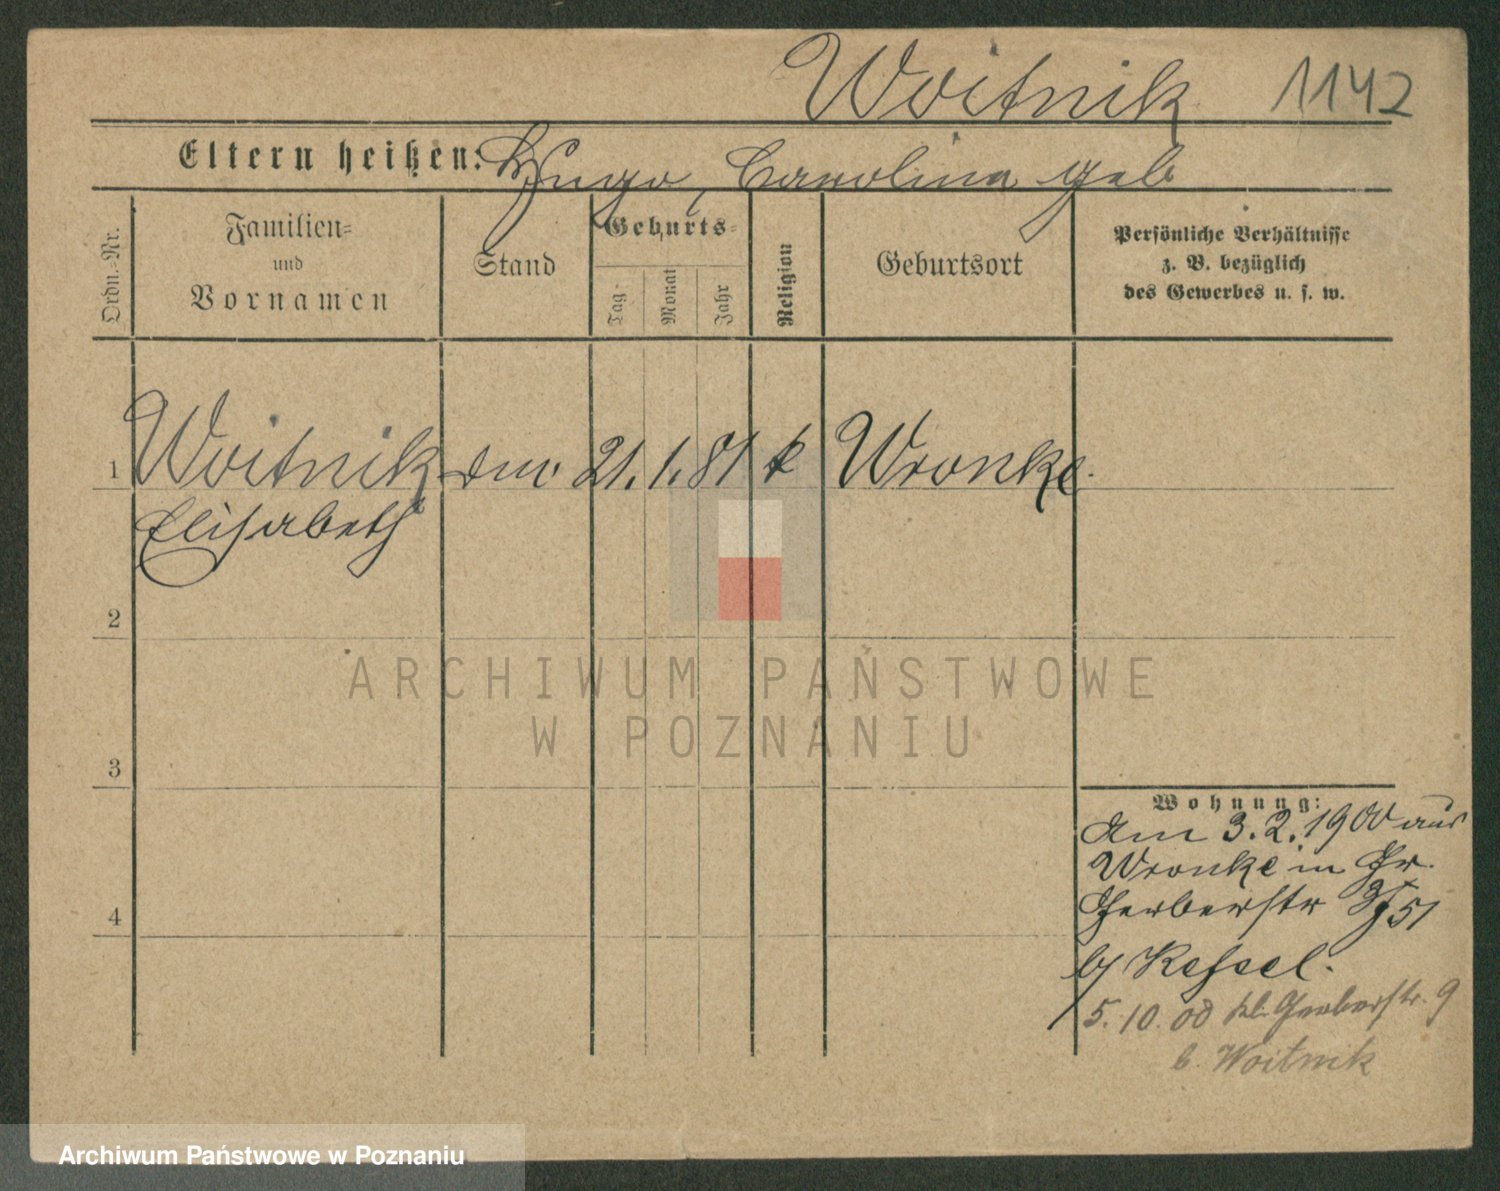 Woitnik 1142
Eltern heißen: Hugo, Carolina geb
Ordn.-Nr.
Familien-
und
Vornamen
Stand
Geburts-
Tag-
Monat
Jahr
Religion
Geburtsort
Persönliche Verhältnisse
z. B. bezüglich
des Gewerbes u. s. w.
1 Woitnik 21. 1. 81 k Wronke.
Elisabeth
2
3
4
ARCHIWUM PAŃSTWOWE
W POZNANIU
Wohnung:
Am 3.2.1900 aus
Wronke in Gr.
Gerberstr 51
b/ Kessel.
5. 10. 00 kl. Gerberstr. 9
b. Woitnik
Archiwum Państwowe w Poznaniu